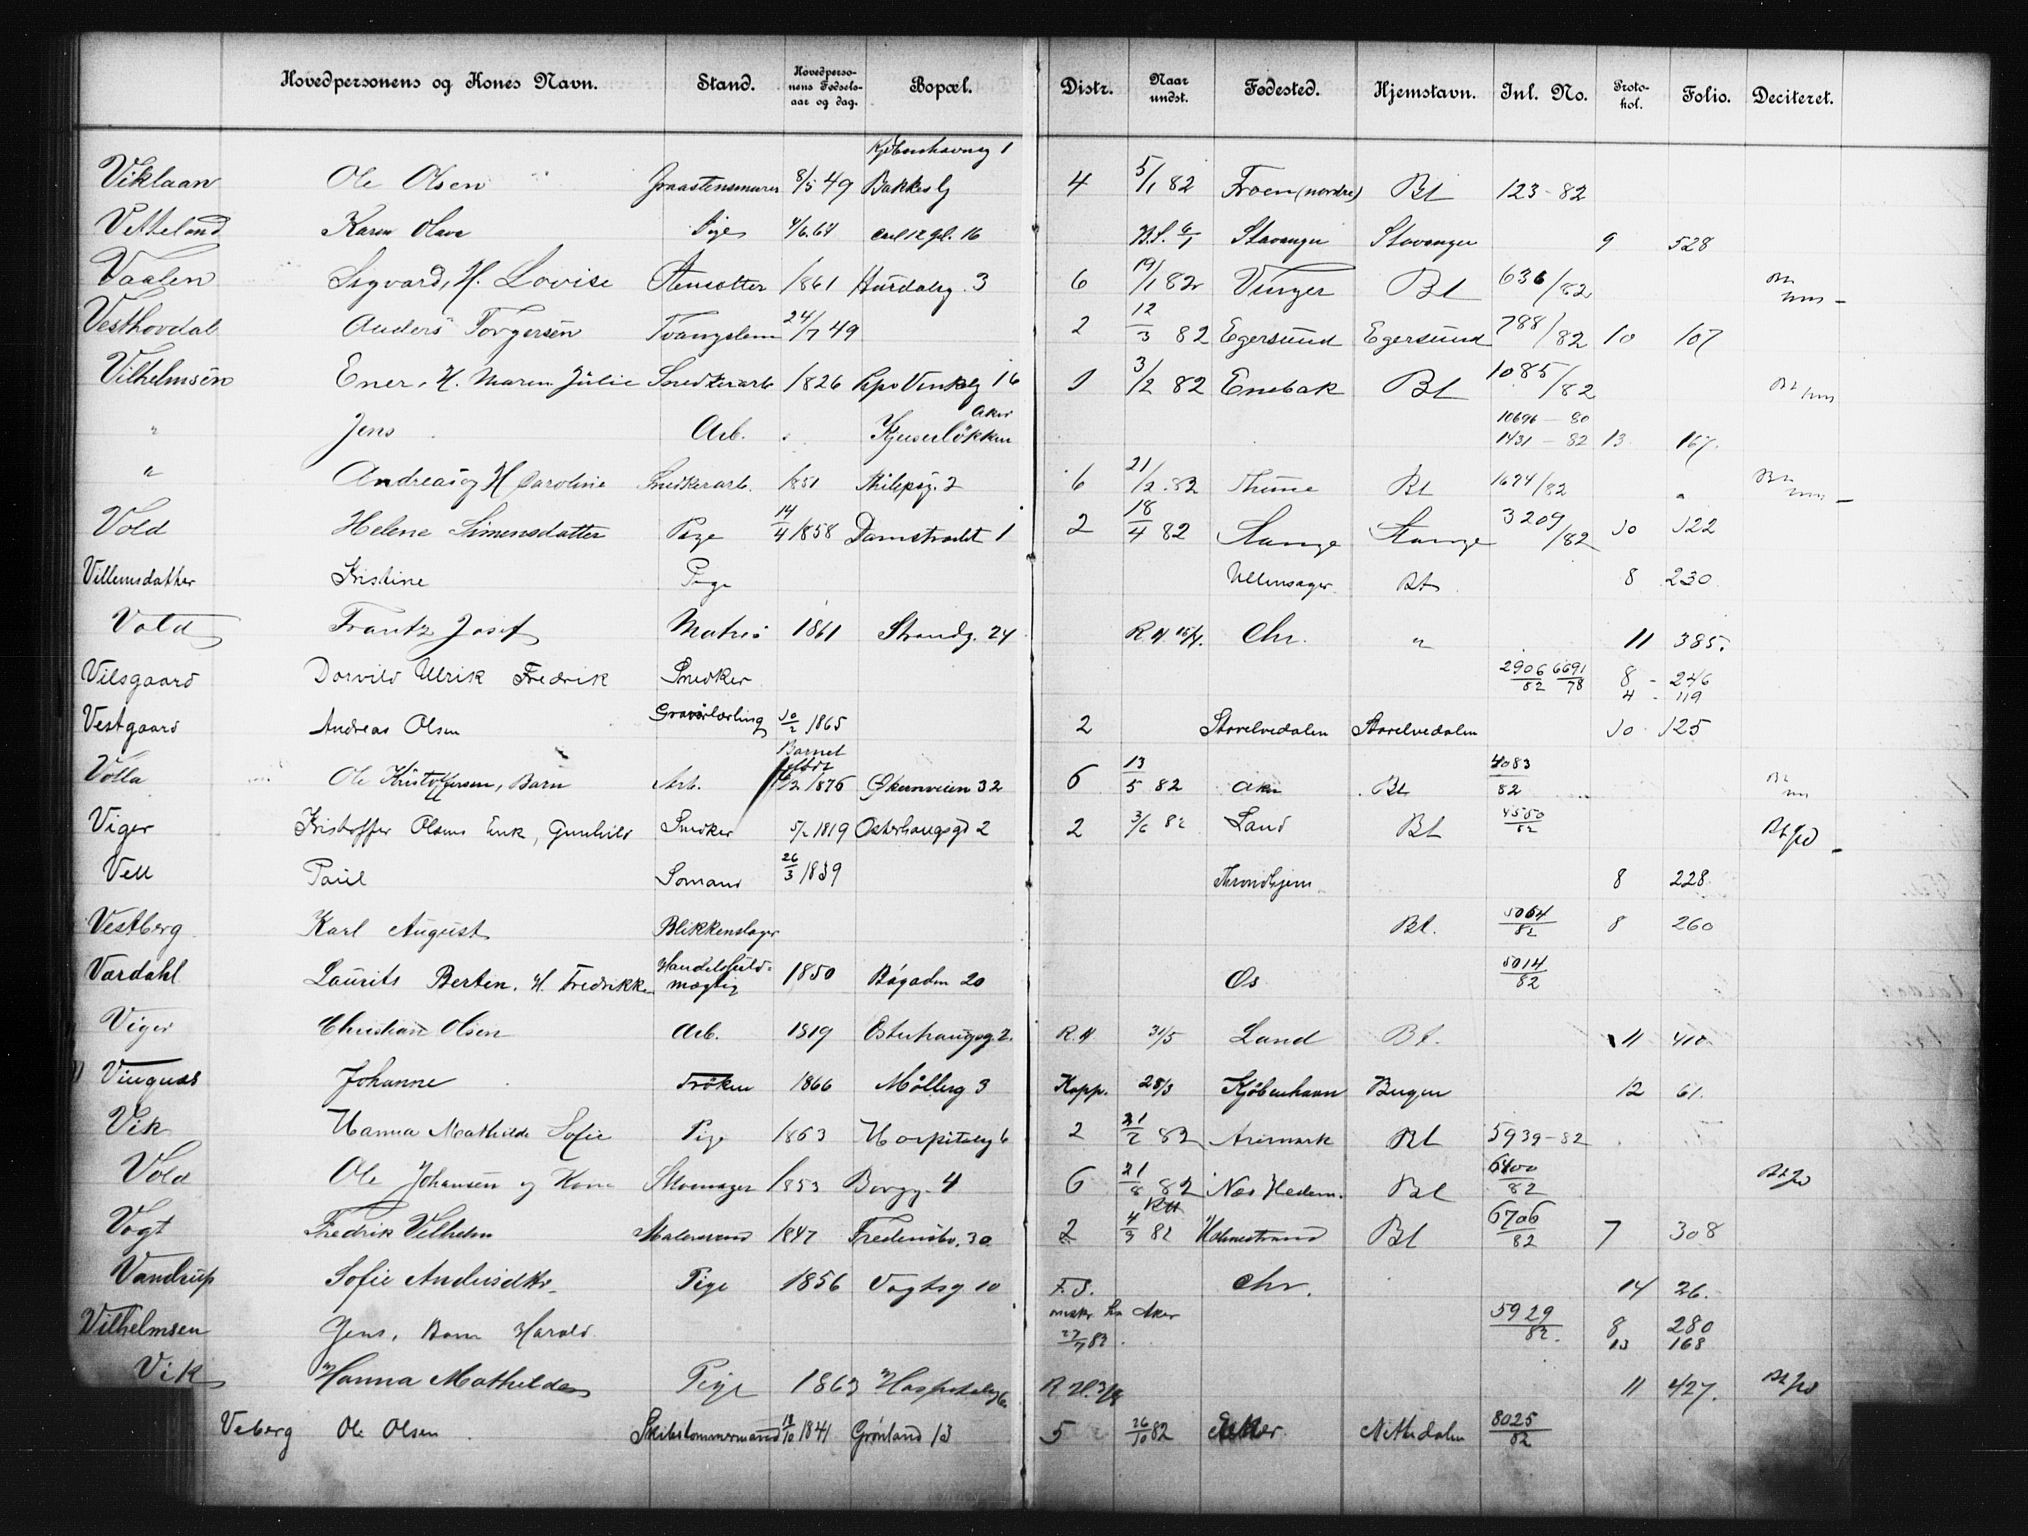 Hovedpersonens og Kones Navn. Stand. Hovedpersonens Fødselsaar og dag. Bopæl. Distr. Naar undst. Fødested. Hjemstavn. Inl. No. Protokol. Folio. Deciteret.
Kjøbenhavng 1
Viklaan Ole Olsen Graastensmurer 8/5 49 Bakkeslg 4 5/1 82 Froen (nordre) Bt 123-82
Vetteland Karen Olava Pige 4/6.64 Carl 12 gd. 16 6/1 Stavanger Stavanger 9 528
Vaalen Sigvard, H. Lovise Stensætter 1861 Hurdalsg. 3 6 19/1 82 Vinger Bt 636/82
Vesthovdal Anders Torgersen Tvangslem 24/7 49 2 12/3 82 Egersund Egersund 788/82 10 107
Vilhelmsen Ener, H. Maren Julie Snedkerarb 1826 16 1 3/2 82 Enebak Bt 1085/82
" Jens Arb. Aker Kjuserløkken 10696-80 1431-82 13 167.
" Andreas og H Caroline Snedkerarb. 1851 Philipsg. 2 6 21/2.82 Thune Bt 1694/82
Vold Helene Simensdatter Pige 14/4 1858 Damstrædet 1 2 18/4 82 Stange Stange 3209/82 10 122
Villemsdatter Kristine Pige Ullensager Bt 8 230
Vold Frantz Josef Matros 1861 Strandg. 24 R.H. 15/4. Chr. " 11 385.
Vilsgaard Dorvild Ulrik Fredrik Snedker 2906/82 6691/78 8 - 246
4 - 119
Vestgaard Andreas Olsen Gravørlærling 10/2 1865 2 Storelvedalen Storelvedalen 10 125
Barnet
født
Volla Ole Kristoffersen, Barn Arb. /2 1876 Økernveien 32 6 13/5 82 Aker Bt 4083/82
Viger Kristoffer Olsens Enk, Gunhild Snedker 5/2 1819 Osterhaugsgd 2 2 3/6 82 Land Bt 4550/82
Vell Paul Sømand 26/3 1839 Throndhjem 8 228
Vestberg Karl August Blikkenslager Bt. 5064/82 8 260
Værdahl Laurits Berten, H. Fredrikke Handelsfuldmægtig 1850 Bøgaden 20 Øs 5014/82
Viger Christian Olsen Arb. 1819 Osterhaugsg. 2. R.H. 31/5 Land Bt. 11 410
Vingnæs Johanne Frøken 1866 Møllerg 3 Kopp. 28/3 Kjøbenhavn Bergen 12 61.
Vik Hanna Mathilde Sofie Pige 1863 Hospitalsg 6 2 82 Aremark Bt 5939-82
Vold Ole Johansen og Kone Skomager 1853 Borgg. 4 6 21/8 82 Næs Hedem. Bt 6400/82
Vogt Fredrik Velhelm Malersvend 1847 Fredensbo. 30 2 4/9 82 Holmestrand Bt 6706/82 7 308
Vandrup Sofie Andersdtr. Pige 1856 Vogtsg 10 F.S. Chr. 14 26.
Vilhelmsen Jens, Barn Harald fra Aker 27/7 82. 5929/82. 8 280
13 168
Vik Hanna Mathilde Pige 1863 Hospitalsg 6. R.H. 11 427.
Veberg Ole Olsen Skibstømmermand 13/10 1841 Grønland 13 5 26/10 82 Nittedalen 8025/82